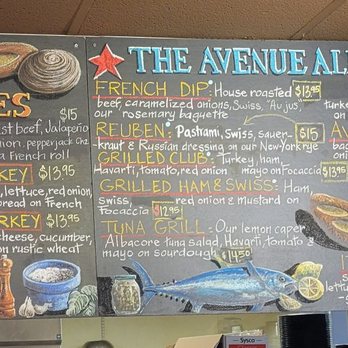 THE AVENUE AL
FRENCH DIP: House roasted $13.95
beef, caramelized onions, Swiss, "Au jus,"
our rosemary baguette
REUBEN: Pastrami, Swiss, sauer- $15
kraut & Russian dressing on our New York rye
GRILLED CLUB: Turkey, ham,
Havarti, tomato, red onion mayo on Focaccia $13.95
GRILLED HAM & SWISS: Ham,
swiss, red onion & mustard on
Focaccia $12.95
TUNA GRILL: Our lemon caper
Albacore tuna salad, Havarti, tomato &
mayo on sourdough $14.50
ES
$15
st beef, Jalapeño
nion, pepperjack
a French roll
KEY $13.95
, lettuce, red onion,
bread on French
RKEY $13.95
cheese, cucumber,
on rustic wheat
turke
on
A
Ha
on
lettu
Sysco